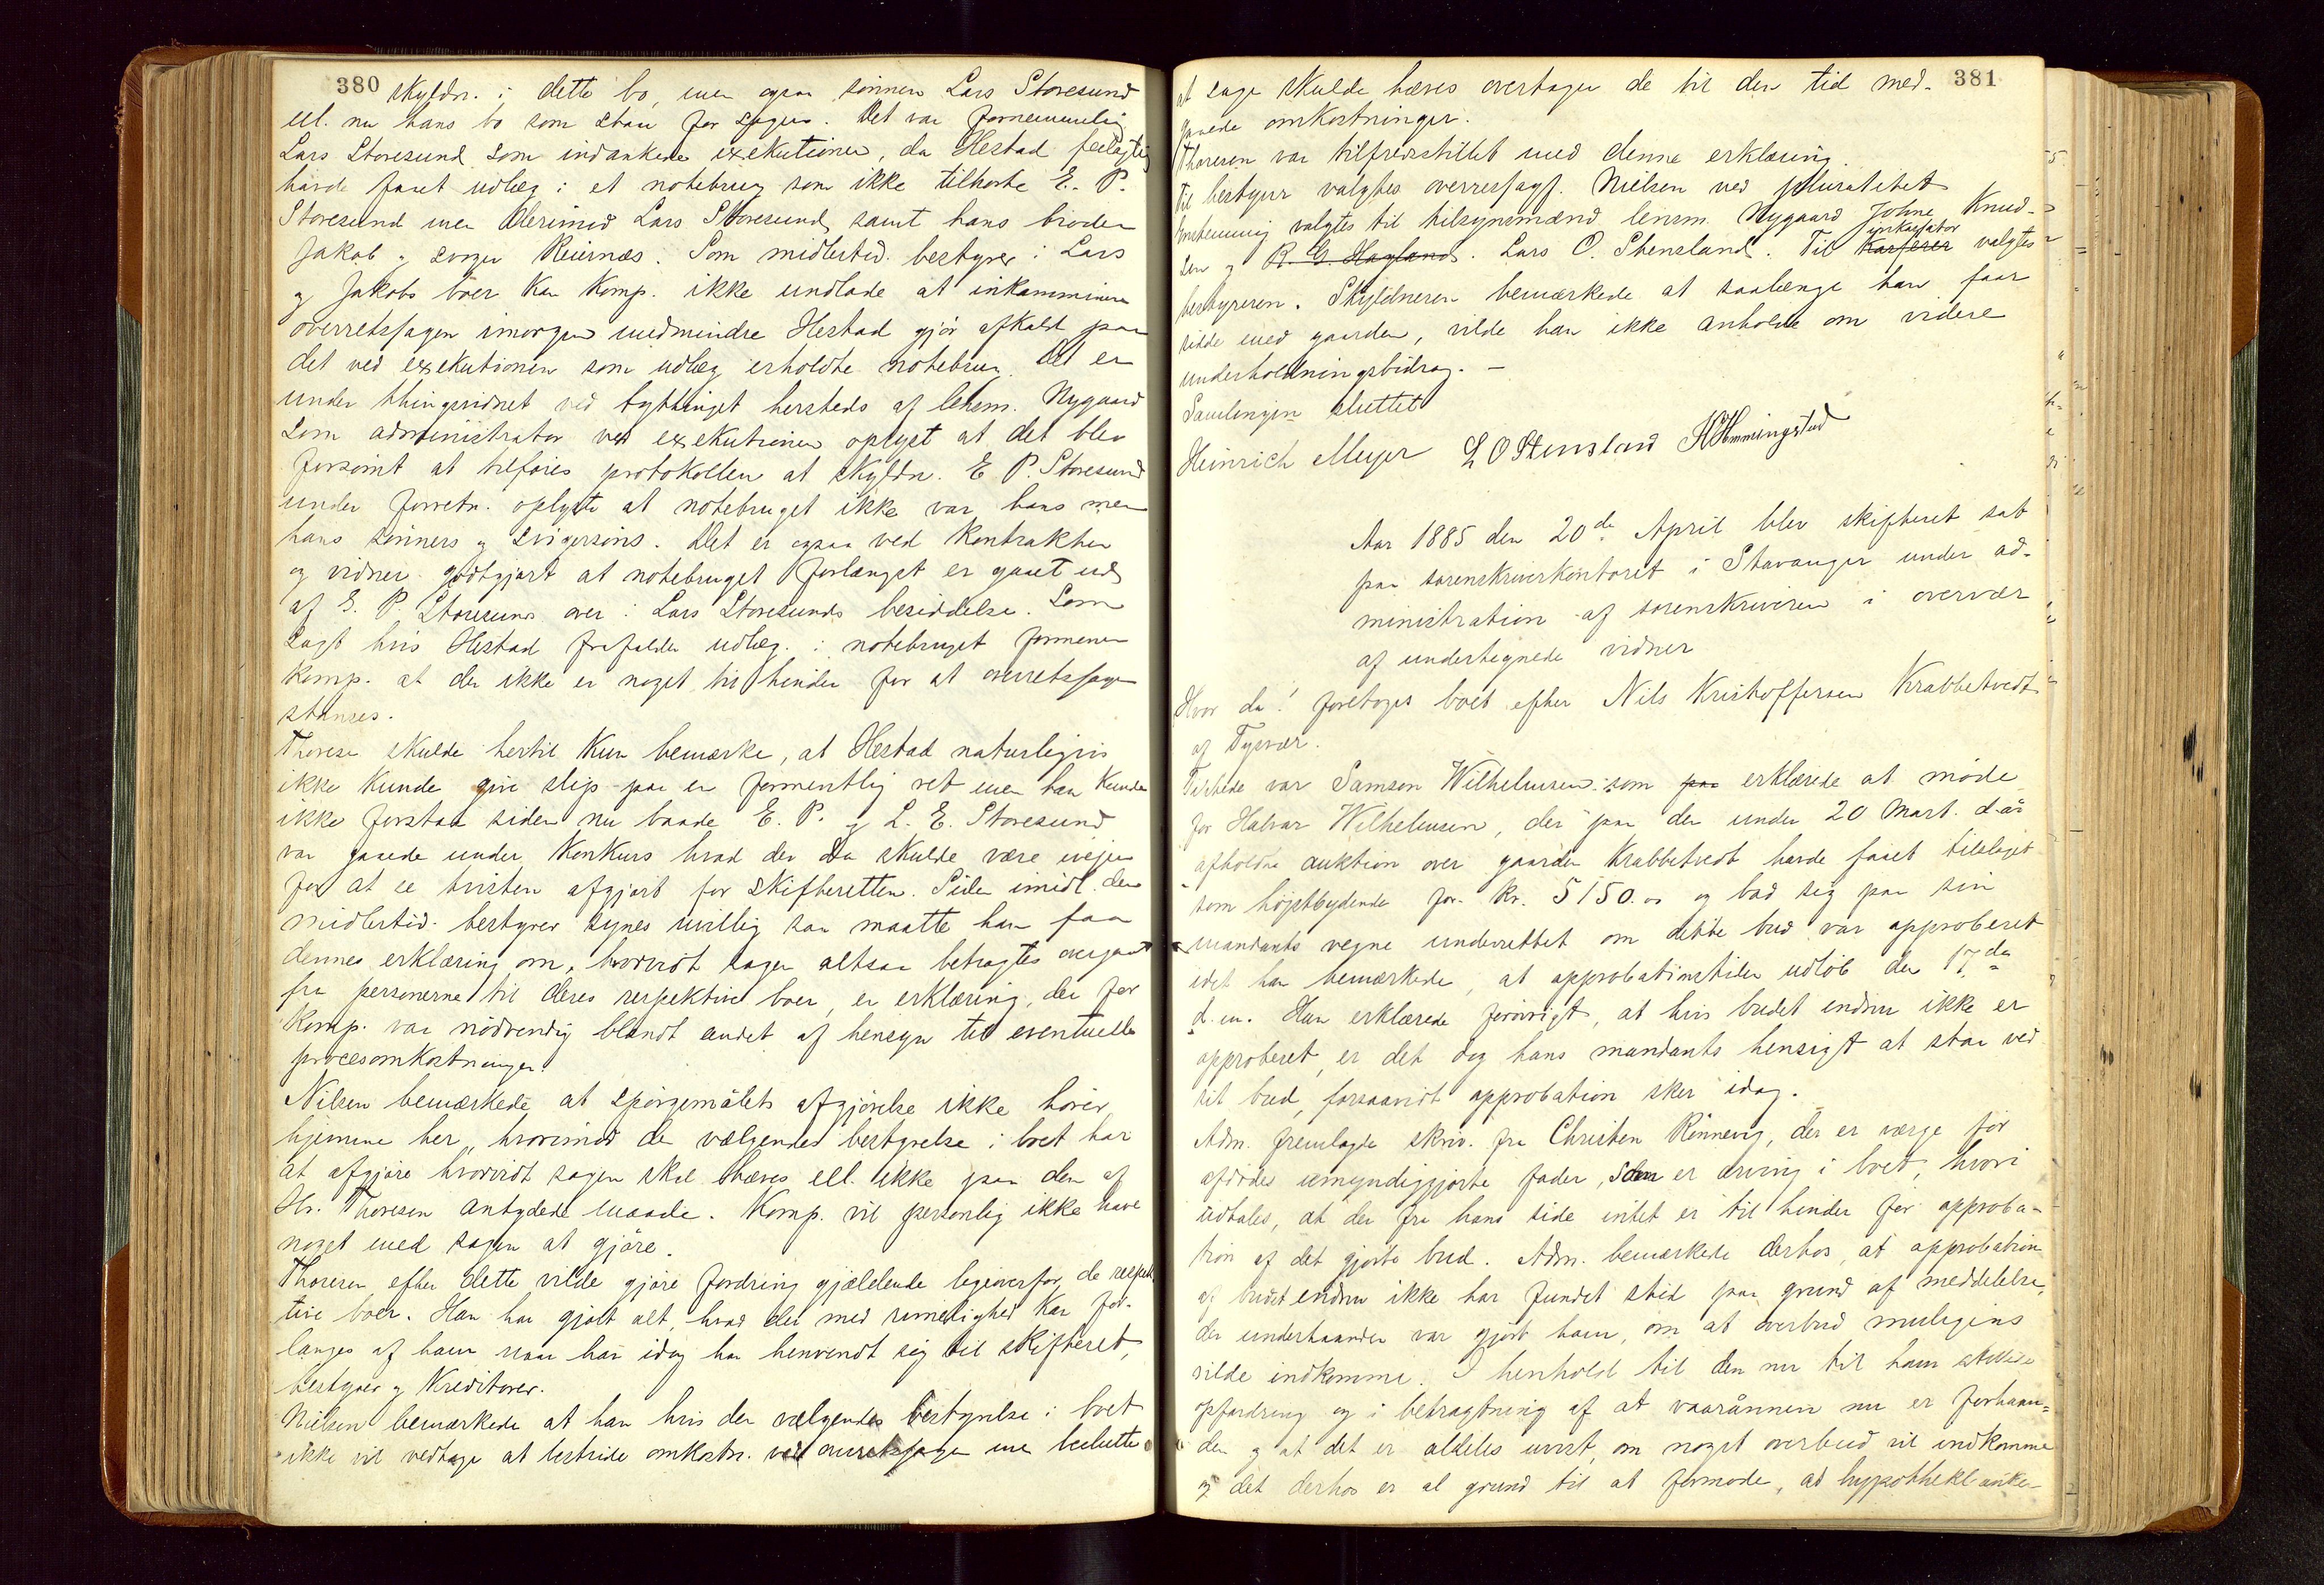 380
skyldn. i dette bo, men ogsaa sønnen Lars Storesund
ell. nu hans bo som staar for sagen. Det var fornemmelig
Lars Storesund som indankede exekutionen, da Hestad feilagtig
havde faaet udlæg i et notebrug som ikke tilhørte E. P.
Storesund men derimod Lars Storesund samt hans broder
Jakob og svoger Reiernæs. Som midlertid. bestyrer i Lars
og Jakobs boer kan komp. ikke undlade at inkamminere
overretssagen imorgen medmindre Hestad gjør afkald paa
det ved exekutionen som udlæg erholdte notebrug. Det er
under thingsvidnet ved bygthinget hersteds af lensm. Nygaard
som administrator ved exekutionen oplyst at det blev
forsømt at tilføres protokollen at skyldn. E P. Storesund
under forretn. oplyste at notebruget ikke var hans men
hans sønners og svigersøns. Det er ogsaa ved kontrakter
og vidner godtgjort at notebruget forlængst er gaaet ud
af E. P. Storesunds over i Lars Storesunds besiddelse. Som
sagt hvis Hestad frafalder udlæg i notebruget formener
komp. at der ikke er noget til hinder for at overretssagen
standses.
Thoresen skulde hertil kun bemærke, at Hestad naturligvis
ikke kunde give slip paa en formentlig ret men han kunde
ikke forstaa siden nu baade E. P. og L. E. Storesund
var gaaede under konkurs hvad der da skulde være iveien
for at se tvisten afgjort for skifteretten. Siden imidl. den
midlertid. bestyrer synes uvillig saa maatte han faa
dennes erklæring om, hvorvidt sagen altsaa betragtes overgaaet
fra personerne til deres respektive boer, en erklæring, der for
komp. var nødvendig blandt andet af hensyn til eventuelle
procesomkostninger.
Nilsen bemærkede at spørgsmålets afgjørelse ikke hører
hjemme her, hvorimod den vælgendes bestyrelse i boet har
at afgjøre hvorvidt sagen skal hæves ell. ikke paa den af
Hr. Thoresen antydede maade. Komp. vil personlig ikke have
noget med sagen at gjøre.
Thoresen efter dette vilde gjøre fordring gjældende ligeoverfor de respek
tive boer. Han har gjort alt, hvad der med rimelighed kan for-
langes af ham naar han idag har henvendt sig til skifteret,
bestyrer og kreditorer.
Nielsen bemærkede at han hvis den vælgendes bestyrelse i boet
ikke vil vedtage at bestride omkostn. ved overretssagen men beslutte
381
at sage skulde hæves overtager de til den tid med-
gaaede omkostninger.
Thoresen var tilfredsstillet med denne erklæring.
Til bestyrer valgtes overretssagf. Nielsen ved pluralitet
Enstemmig valgtes til tilsynsmænd lensm. Nygaard Johne Knud-
sen og R. G. Hagland. Lars O. Stensland. Til kasserer inkassator valgtes
bestyreren. Skyldneren bemærkede at saalænge han faar
sidde med gaarden, vilde han ikke anholde om videre
underholdningsbidrag. -
Samlingen sluttet
Heinrich Meyer L O Stensland H Hemmingstad
Aar 1885 den 20de April blev skifteret sat
paa sorenskriverkontoret i Stavanger under ad-
ministration af sorenskriveren i overvær
af undertegnede vidner
Hvor da! foretoges boet efter Nils Kristoffersen Krabbetvedt
af Tysvær.
Tilstede var Samson Wilhelmsen som paa erklærede at møde
for Halvar Wilhelmsen, der paa den under 20 Mart. d. år
afholdte auktion over gaarden Krabbetvedt havde faaet tilslaget
som højstbydende for kr. 5150.00 og bad sig paa sin
mandants vegne underrettet om dette bud var approberet
idet han bemærkede, at approbationstiden udløb den 17de
d. m. Han erklærede forøvrigt, at hvis budet endnu ikke er
approberet, er det dog hans mandants hensigt at staa ved
sit bud, forsaavidt approbation sker idag.
Adm. fremlagde skriv. fra Christen Rønnevig, der er værge for
afdødes umyndiggjorte fader, som er arving i boet, hvori
udtales, at der fra hans side intet er til hinder for approba-
tion af det gjorte bud. Adm. bemærkede derhos, at approbation
af budet endnu ikke har fundet sted paa grund af meddelelse,
der underhaanden var gjort ham, om at overbud muligens
vilde indkomme. I henhold til den nu til ham stillede
opfordring og i betragtning af at vaarånnen nu er forhaan-
den og at det er aldeles uvist, om noget overbud vil indkomme
og det derhos er al grund til at formode, at hypothekbanke-